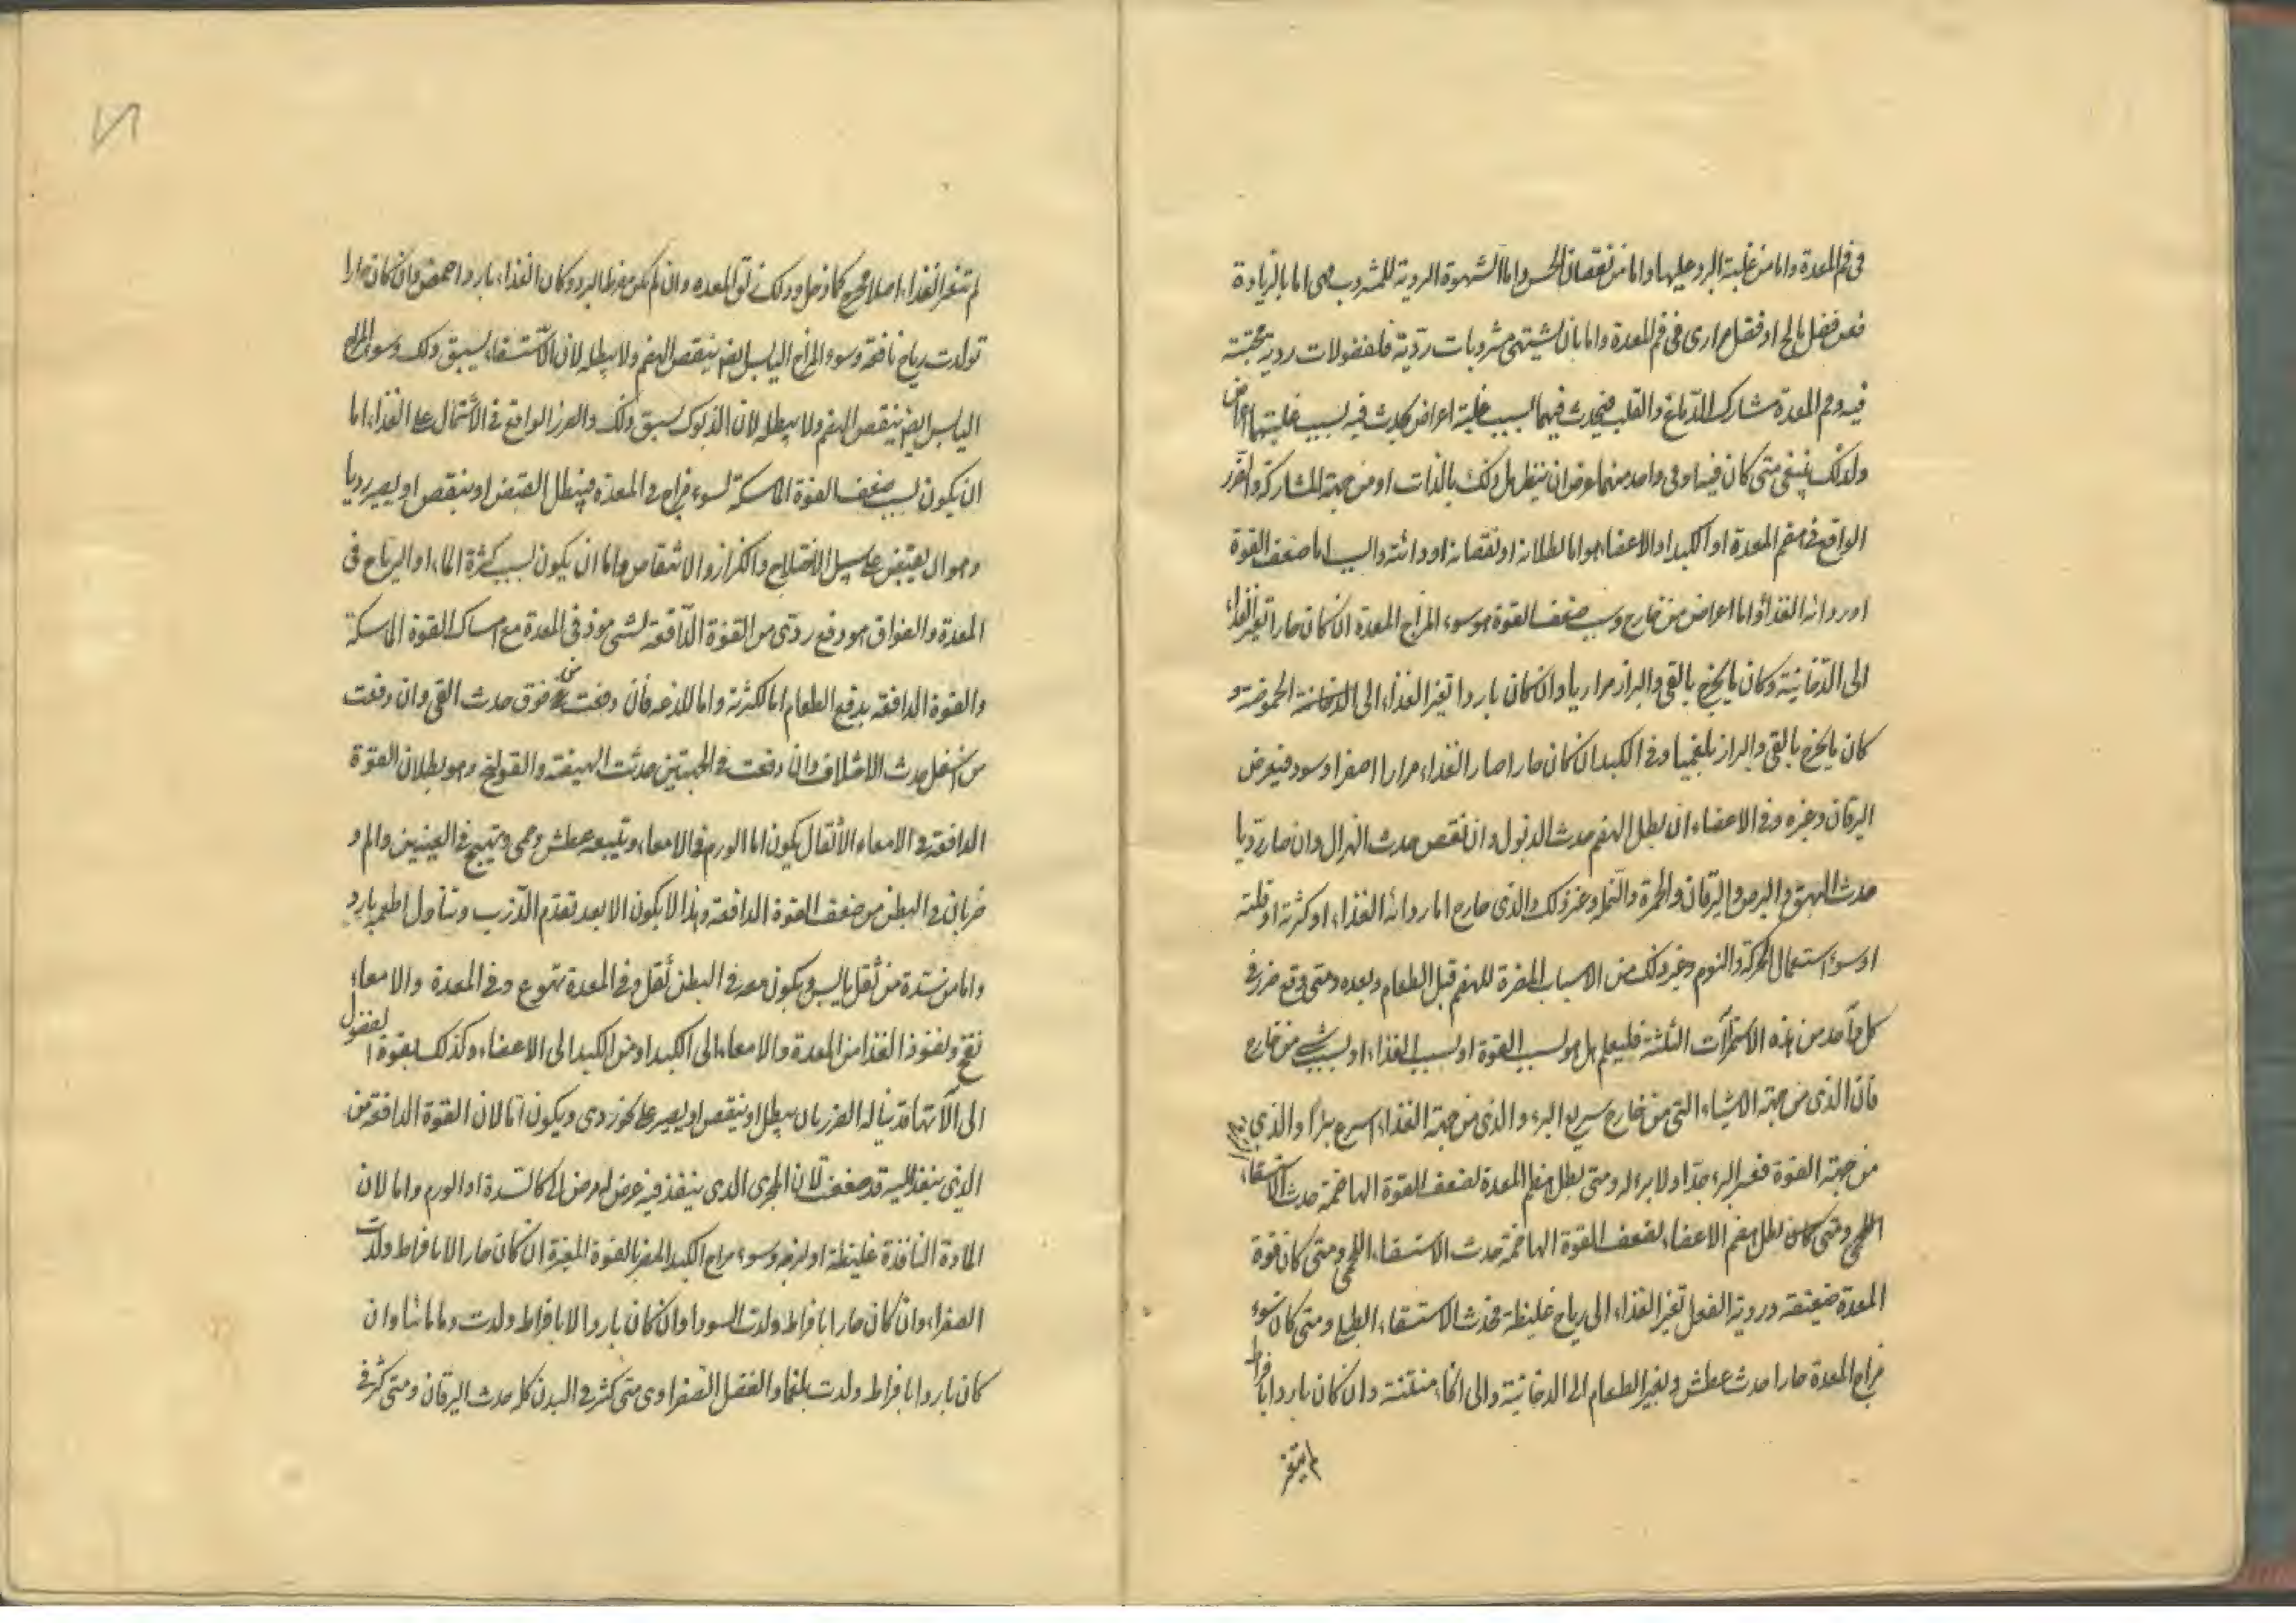 فى فم المعدة واما من غلبة البرد عليها واما من نقصان الحس واما الشهوة الردية للمشروب هى اما بالزيادة
فعن فضل مالح او فضل مرارى فى فم المعدة واما بان يشتهى مشروبات ردّية فلفضولات ردية محتبتة
فيه وفم المعدة مشارك الدماغ والقلب فيحدث فيهما بسبب علية اعراض كما يحدث فيه بسبب عليتهما اعراض
ولذلك ينبغى متى كان فيه او فى واحد منهما عرض ان ينظر هل ذلك بالذات او من جهة المشاركة والضرر
الواقع فى هضم المعدة او الكبد او الاعضاء هو اما لبطلانه او نقصانه او ردائته والسبب اما ضعف القوة
او رداءة الغذاء واما اعراض من خارج وسبب ضعف القوة هو سوء المزاج المعدة ان كان حارا تغير الغذاء
الى الدّخانية وكان ما يخرج بالقى والبراز مراريا وان كان باردا تغير الغذاء الى الحموضة و
كان ما يخرج بالقى والبراز بلغميا وفى الكبد ان كان حارا صار الغذاء مرارا اصفر او سود فيعرض
اليرقان وغيره وفى الاعضاء ان بطل الهضم حدث الذبول وان نقص حدث الهزال وان صار رديا
حدث البهق والبرص واليرقان والحمرة والنملة وغير ذلك والذى خارج اما رداءة الغذاء او كثرته او قلته
او سوء استعمال الحركة والنوم وغير ذلك من الاسباب المضرة للهضم قبل الطعام وبعده ومتى وقع ضرر فى
كل واحد من هذه الاستمرآت الثلثة فليعلم هل هو لسبب القوة او لسبب الغذاء او لسبب شى من خارج
فان الذى من جهة الاشياء التى من خارج سريع البرء والذى من جهة الغذاء اسرع برءا والذى
من جهة القوة فعسر البرء جدّا او لا برء له ومتى بطل هضم المعدة لضعف القوة الهاضمة حدث الاستسقاء
اللحمى ومتى كان بطل هضم الاعضاء لضعف القوة الهاضمة حدث الاستسقاء اللحمى ومتى كان قوة
المعدة ضعيفة وردية الفعل تغير الغذاء الى رياح غليظة فحدث الاستسقاء الطبلى ومتى كان سوء
مزاج المعدة حارا حدث عطش وتغير الطعام الى الدخانية والى انحاء منتنة وان كان باردا بافراط
لم يتغير
لم تتغير الغذاء اصلا فيخرج كما دخل وذلك زلق المعده وان لم يكن مفرط البرد وكان الغذاء باردا حمض وان كان حارا
تولدت رياح نافخة وسوء المزاج اليابس ايضا ينقص الهضم ولا يبطله لان الاستسقاء يسبق ذلك وسوء المزاج
اليابس ايضا ينقص الهضم ولا يبطله لان الذبول يسبق ذلك والضرر الواقع فى الاشتمال على الغذاء اما
ان يكون لسبب ضعف القوة الماسكة لسوء مزاج فى المعدة فيبطل القبض او ينقص او يصير رديا
وهو ان يقبض على سبيل الاختلاج والكزاز والانتفاض واما ان يكون لسبب كثرة الماء او الرياح فى
المعدة والفواق هو دفع ردى من القوة الدّافعة لشى موذ فى المعدة مع امساك القوة الماسكة
والقوة الدافعة يدفع الطعام اما لكثرته واما للذعه فان دفعت من فوق حدث القى وان دفعت
من اسفل حدث الاختلاف وان دفعت فى الجهتين حدثت الهيضة والقولنج وهو بطلان القوة
الدافعة فى الامعاء الاثقال يكون اما لورم فى الامعاء ويتبعه عطش وحمى وتهيج فى العينين والم و
ضربان فى البطن من ضعف القوة الدافعة وهذا لا يكون الا بعد تقدم الذرب وتناول اطعمه بارد
واما من سدة من ثقل يابس ويكون معه فى البطن ثقل وفى المعدة تهوع وفى المعدة والامعاء
نفخ ونفوذ الغذا من المعدة والامعاء الى الكبد او من الكبد الى الاعضاء وكذلك بقوة الفضول
الى الآتها قد يناله الضرر بان يبطل او ينقص او يصير على نحو ردى ويكون امّا لان القوة الدافعة من
الذى ينفذ اليه قد ضعفت لان المجرى الذى ينفذ فيه عرض له مرض الى كالسدة او الورم واما لان
المادة النافذة غليظة او لزجه وسوء مزاج الكبد المضر بالقوة المغيرة ان كان حارا لا بافراط ولدت
الصفراء وان كان حارا بافراط ولدت السودا وان كان باردا لا بافراط ولدت دما مائيا وان
كان باردا بافراط ولدت بلغما والفضل الصفراوى متى كثر فى البدن كله حدث اليرقان ومتى كثر فى